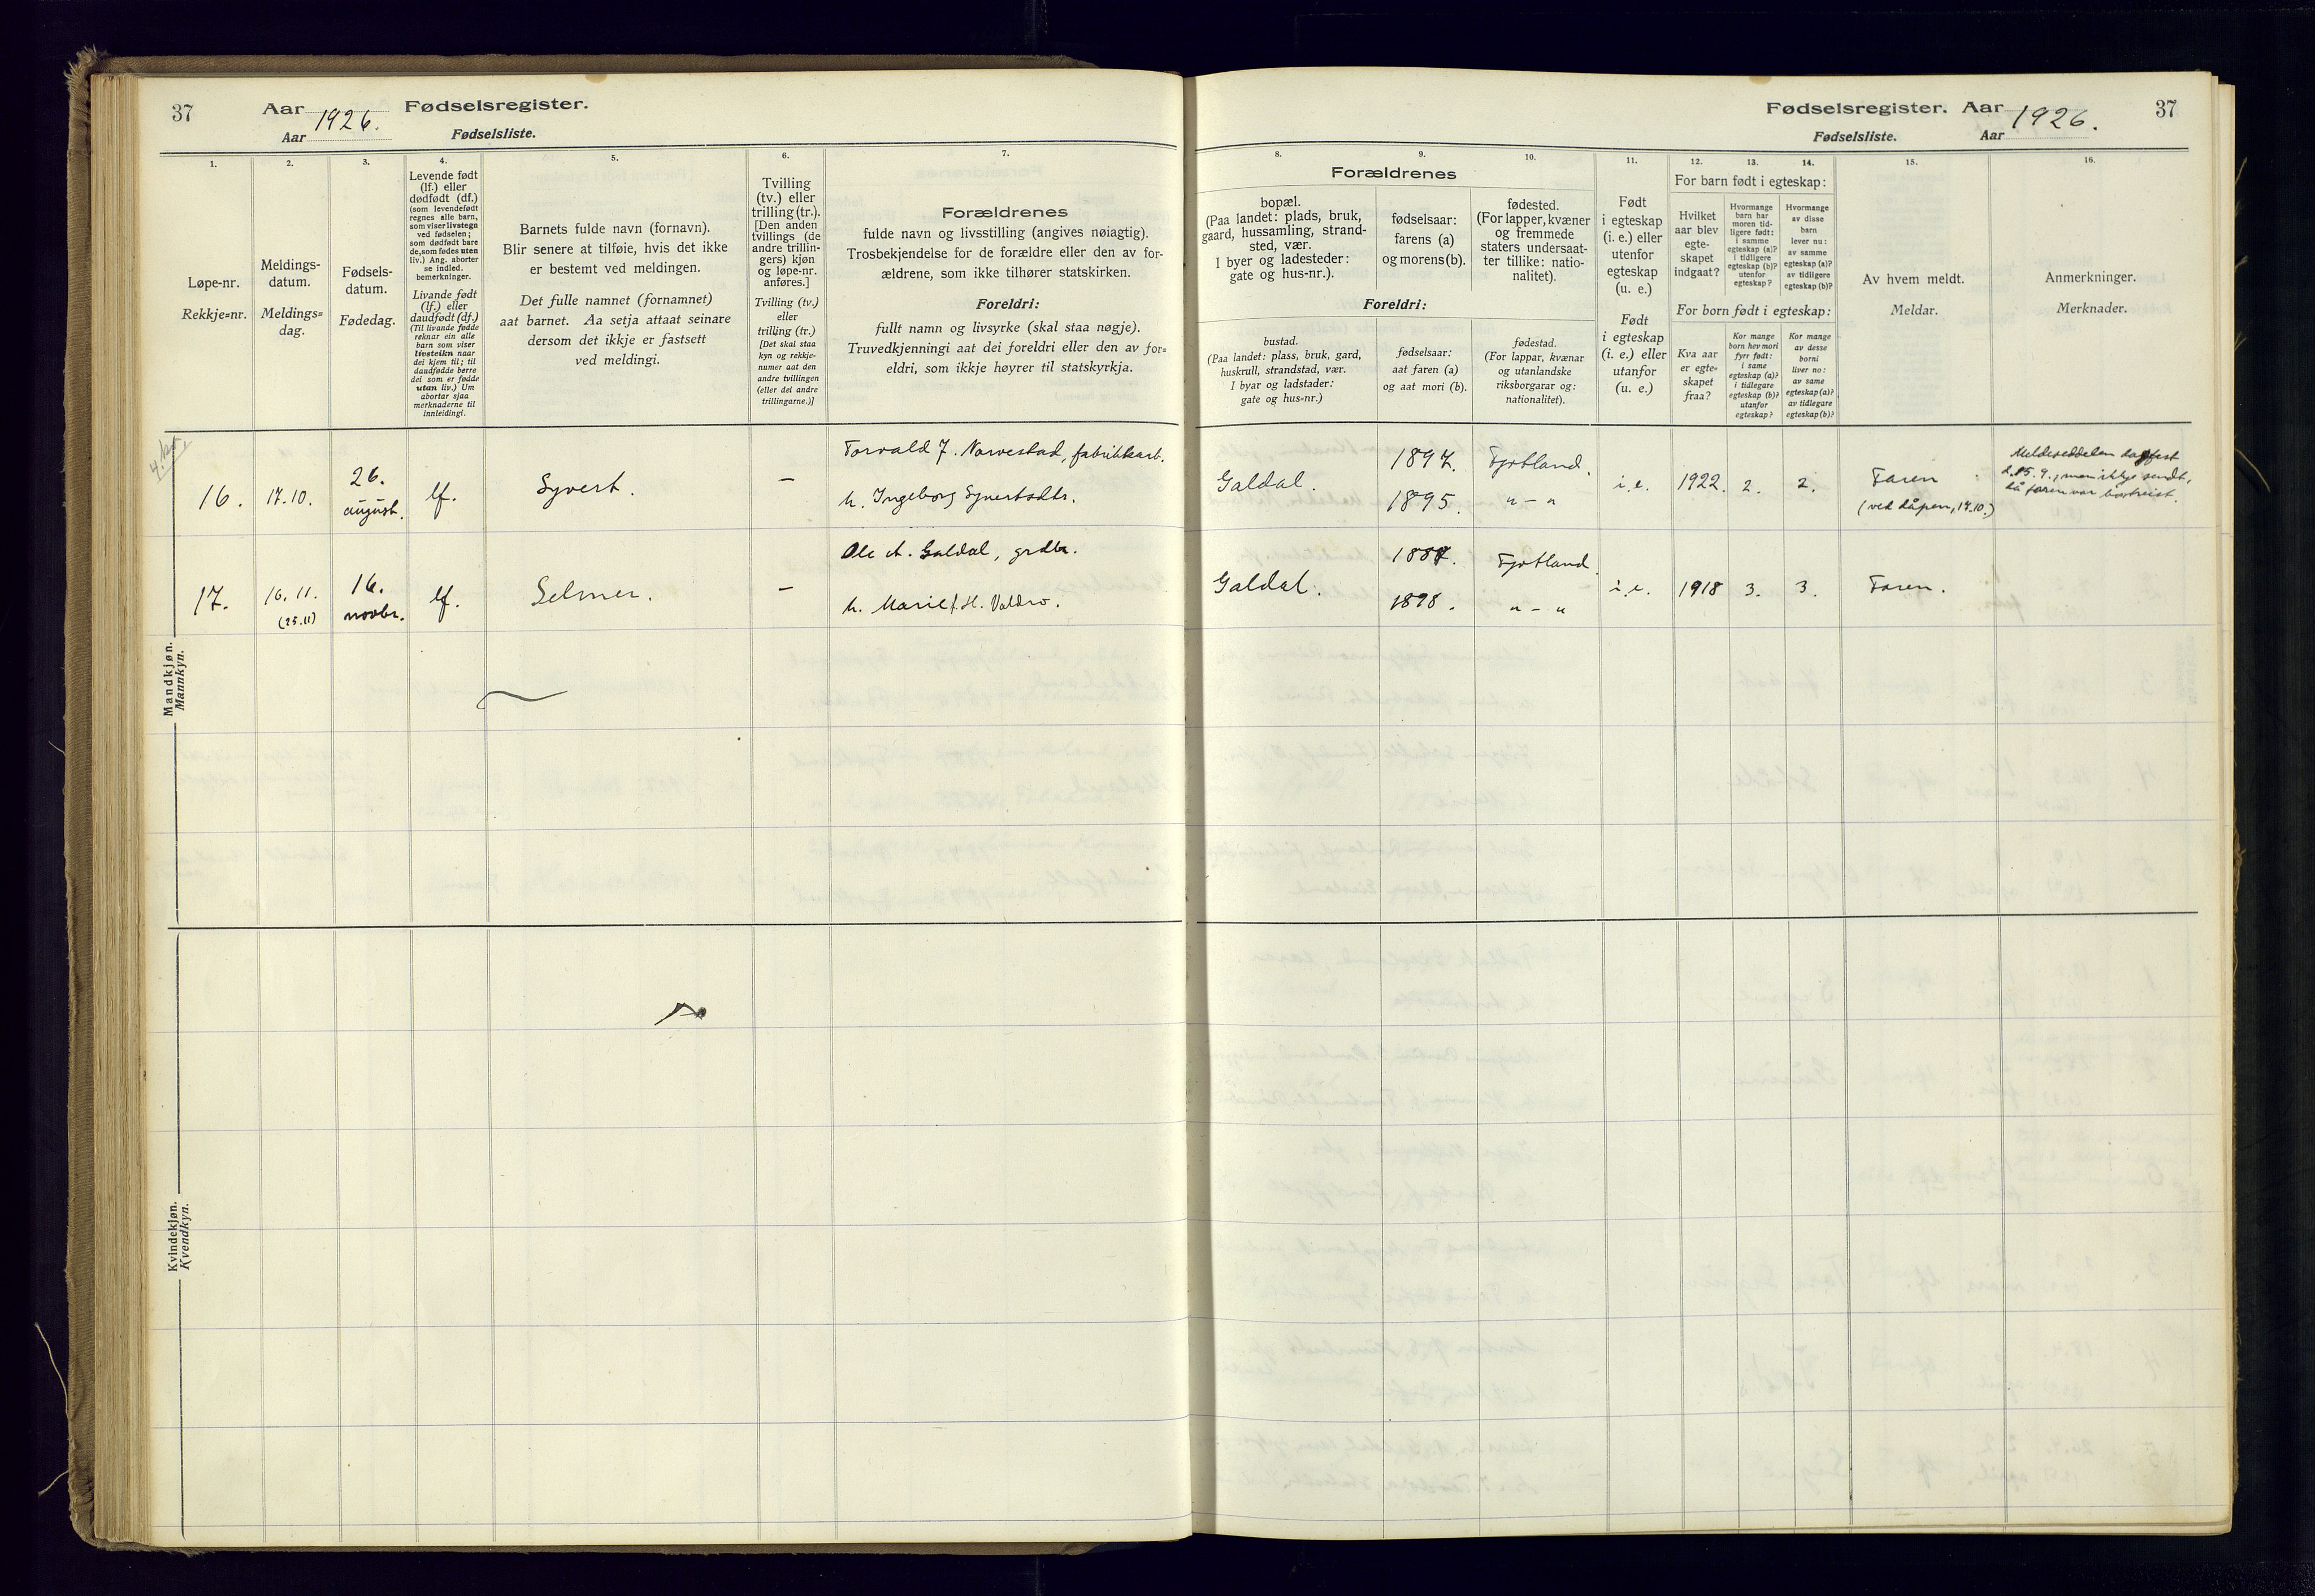 37
Aar 1926. Fødselsregister.
Aar Fødselsliste.
1.
Løpe-nr.
Rekkje=nr.
2.
Meldings-
datum.
Meldings=
dag.
3.
Fødsels-
datum.
Fødedag.
4.
Levende født
(lf.) eller
dødfødt (df.)
(som levendefødt
regnes alle barn,
som viser livstegn
ved fødselen;
som dødfødt bare
de, som fødes uten
liv.) Ang. aborter
se indled.
bemerkninger.
Livande født
(lf.) eller
daudfødt (df.)
(Til livande fødde
reknar ein alle
barn som viser
livsteikn naar
dei kjem til; til
daudfødde berre
dei som er fødde
utan liv.) Um
abortar sjaa
merknaderne til
innleidingi.
5.
Barnets fulde navn (fornavn).
Blir senere at tilføie, hvis det ikke
er bestemt ved meldingen.
Det fulle namnet (fornamnet)
aat barnet. Aa setja attaat seinare
dersom det ikkje er fastsett
ved meldingi.
6.
Tvilling
(tv.) eller
trilling (tr.).
[Den anden
tvillings (de
andre trillin-
gers) kjøn
og løpe-nr.
anføres.]
Tvilling (tv.)
eller
trilling (tr.)
[Det skal staa
kyn og rekkje-
numer aat den
andre tvillingen
(eller dei andre
trillingarne.)]
7.
Forældrenes
fulde navn og livsstilling (angives nøiagtig).
Trosbekjendelse for de forældre eller den av for-
ældrene, som ikke tilhører statskirken.
Foreldri:
fullt namn og livsyrke (skal staa nøgje).
Truvedkjenningi aat dei foreldri eller den av for=
eldri, som ikkje høyrer til statskyrkja.
16.
17.10.
26.
august.
lf.
Syvert.
–
Torvald J. Narvestad, fabrikkarb.
h. Ingeborg Syvertsdtr.
17.
16.11.
(25.11)
16.
novbr.
lf.
Selmer.
–
Ole A. Galdal, grdbr.
h. Marie f. H. Valdro.
Mandkjøn.
Mannkyn.
Kvindekjøn.
Kvendkyn.
Fødselsregister. Aar 1926. 37
Fødselsliste. Aar
Forældrenes
8.
bopæl.
(Paa landet: plads, bruk,
gaard, hussamling, strand-
sted, vær.
I byer og ladesteder:
gate og hus-nr.).
9.
fødselsaar:
farens (a)
og morens (b).
10.
fødested.
(For lapper, kvæner
og fremmede
staters undersaat-
ter tillike: natio-
nalitet).
Foreldri:
bustad.
(Paa landet: plass, bruk, gard,
huskrull, strandstad, vær.
I byar og ladstader:
gate og hus=nr.)
fødselsaar:
aat faren (a)
og aat mori (b).
fødestad.
(For lappar, kvænar
og utanlandske
riksborgarar og:
nationalitet).
11.
Født
i egteskap
(i. e.) eller
utenfor
egteskap
(u. e.)
Født
i egteskap
(i. e.) eller
utanfor
(u. e.)
12. 13. 14.
For barn født i egteskap:
Hvilket
aar blev
egte-
skapet
indgaat?
Hvormange
barn har
moren tid-
ligere født:
i samme
egteskap (a)?
i tidligere
egteskap (b)?
utenfor
egteskap?
Hvormange
av disse
barn
lever nu:
av samme
egteskap (a)?
av tidligere
egteskap (b)?
For born født i egteskap:
Kva aar
er egte=
skapet
fraa?
Kor mange
born hev mori
fyrr født:
i same
egteskap (a)?
i tidlegare
egteskap (b)?
utanfor
egteskap?
Kor mange
av desse
borni
liver no:
av same
egteskap (a)?
av tidlegare
egteskap (b)?
15.
Av hvem meldt.
Meldar.
16.
Anmerkninger.
Merknader.
Galdal.
1897.
1895.
Fjotland.
" – "
i.e.
1922.
2.
2.
Faren
(ved dåpen, 17.10.)
Meldeseddelen dagfest
d. 15.9., men ikkje sendt,
då faren var bortreist.
Galdal.
1887.
1898.
Fjotland.
" – "
i.e.
1918
3.
3.
Faren.